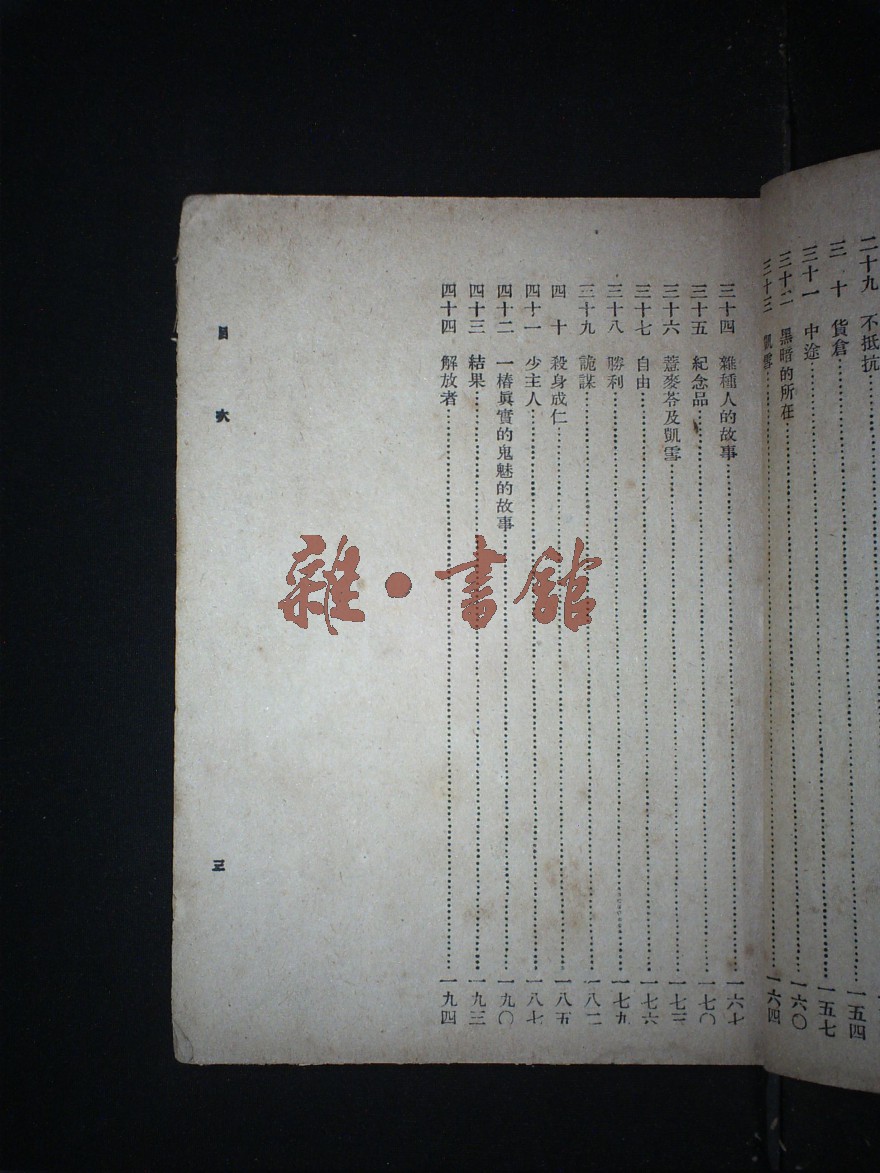 二十九 不抵抗
三十 貨倉 一五四
三十一 中途 一五七
三十二 黑暗的所在 一六〇
三十三 凱雪 一六四
三十四 雜種人的故事 一六七
三十五 紀念品 一七〇
三十六 蓋麥苓及凱雪 一七三
三十七 自由 一七六
三十八 勝利 一七九
三十九 詭謀 一八二
四十 殺身成仁 一八五
四十一 少主人 一八七
四十二 一樁眞實的鬼魅的故事 一九〇
四十三 結果 一九三
四十四 解放者 一九四
目次 三
雜・書館